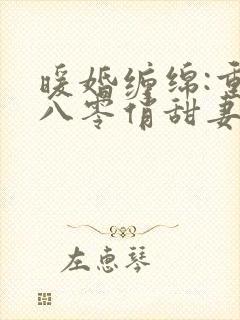 暖婚缠绵:重
八零俏甜妻
左惠琴